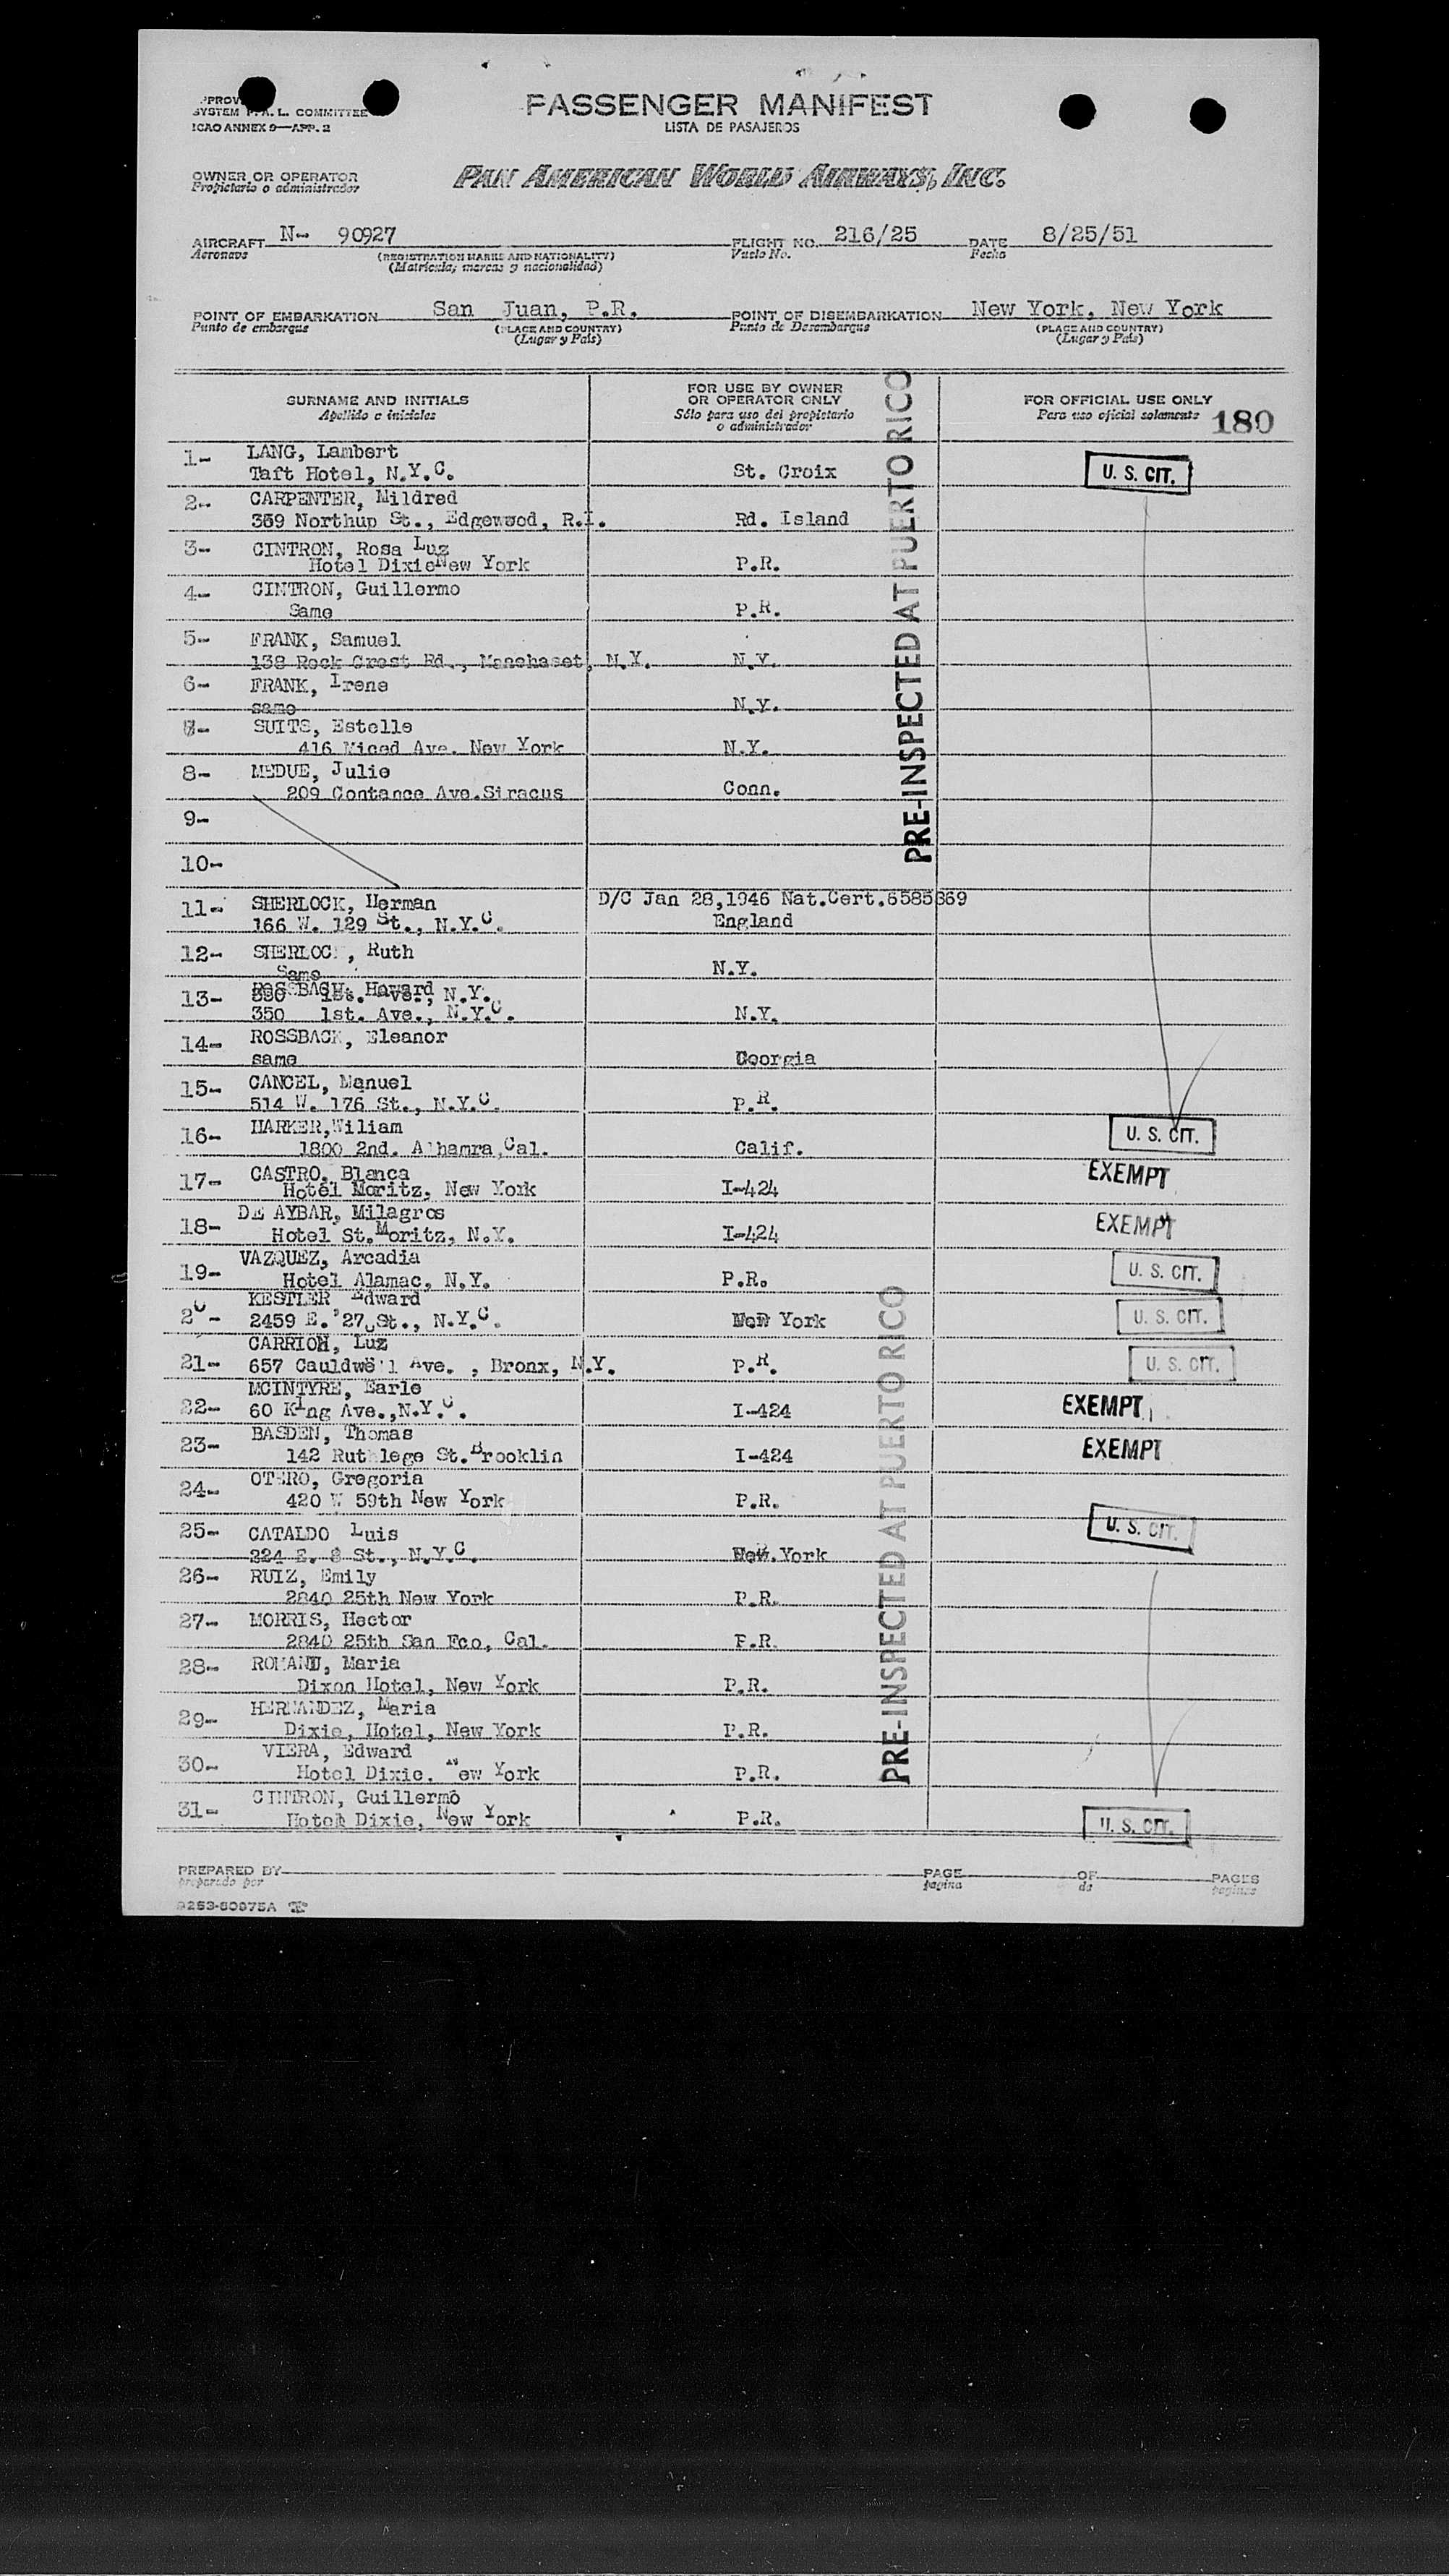 PASSENGER MANIFEST
LISTA DE PASAJEROS
SYSTEM A. L. COMMITTEE
ICAO ANNEX 9—APP. 2
OWNER OR OPERATOR
Propietario o administrador
PAN AMERICAN WORLD AIRWAYS, INC.
AIRCRAFT N- 90927 FLIGHT NO. 216/25 DATE 8/25/51
Aeronave (REGISTRATION MARKS AND NATIONALITY) Vuelo No. Fecha
(Matricula; marcas y nacionalidad)
POINT OF EMBARKATION San Juan, P.R. POINT OF DISEMBARKATION New York, New York
Punto de embarque (PLACE AND COUNTRY) Punto de Desembarque (PLACE AND COUNTRY)
(Lugar y País) (Lugar y País)
SURNAME AND INITIALS
Apellido e iniciales
FOR USE BY OWNER
OR OPERATOR ONLY
Sólo para uso del propietario
o administrador
FOR OFFICIAL USE ONLY
Para uso oficial solamente 180
PRE-INSPECTED AT PUERTO RICO
1- LANG, Lambert
Taft Hotel, N.Y.C. St. Croix U. S. CIT.
2- CARPENTER, Mildred
369 Northup St., Edgewood, R.I. Rd. Island
3- CINTRON, Rosa Luz
Hotel DixieNew York P.R.
4- CINTRON, Guillermo
Same P.R.
5- FRANK, Samuel
138 Rock Crest Rd., Manchaset, N.Y. N.Y.
6- FRANK, Irene
same N.Y.
7- SUITS, Estelle
416 Ave. New York N.Y.
8- MEDUE, Julie
209 Contance Ave.Siracus Conn.
9-
10-
11- SHERLOCK, Herman D/C Jan 28,1946 Nat.Cert.6585869
166 W. 129 St., N.Y.C. England
12- SHERLOC , Ruth
Same N.Y.
13- Haward
350 1st. Ave., N.Y.C. N.Y.
14- ROSSBACK, Eleanor
same Georgia
15- CANCEL, Manuel
514 W. 176 St., N.Y.C. P.R.
16- HARKER,Wiliam U. S. CIT.
1800 2nd. Alhamra,Cal. Calif.
17- CASTRO, Blanca EXEMPT
Hotel Moritz, New York I-424
18- DE AYBAR, Milagros EXEMPT
Hotel St.Moritz, N.Y. I-424
19- VAZQUEZ, Arcadia U. S. CIT.
Hotel Alamac, N.Y. P.R.
20- KESTLER Edward U. S. CIT.
2459 E. 27 St., N.Y.C. New York
21- CARRION, Luz U. S. CIT.
657 Cauldwell Ave. , Bronx, N.Y. P.R.
22- MCINTYRE, Earle EXEMPT
60 King Ave.,N.Y.C. I-424
23- BASDEN, Thomas EXEMPT
142 Ruthlege St.Brooklin I-424
24- OTERO, Gregoria
420 W 59th New York P.R.
25- CATALDO Luis U. S. CIT.
224 E. 8 St., N.Y.C. New York
26- RUIZ, Emily
2840 25th New York P.R.
27- MORRIS, Hector
2840 25th San Fco, Cal. P.R.
28- Maria
Dixon Hotel, New York P.R.
29- HERNANDEZ, Maria
Dixie, Hotel, New York P.R.
30- VIERA, Edward
Hotel Dixie. New York P.R.
31- CINTRON, Guillermo
Hotel Dixie, New York P.R. U. S. CIT.
PRE-INSPECTED AT PUERTO RICO
PREPARED BY PAGE OF PAGES
preparado por pagina de paginas
9253-60975A